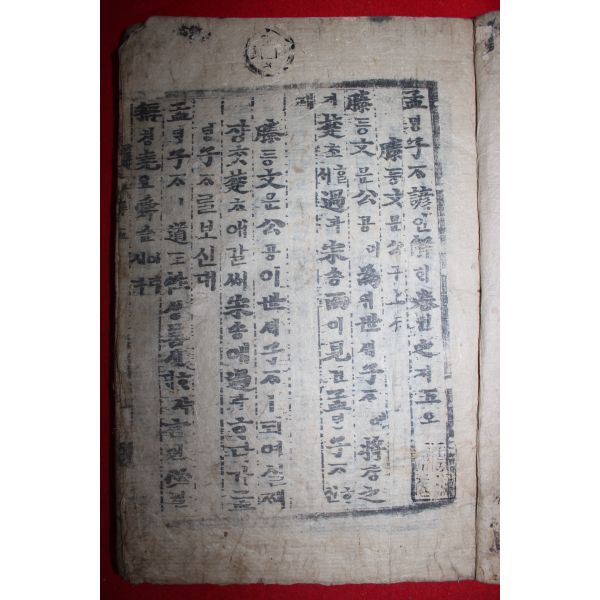 孟ᄆᆡᆼ子ᄌᆞ諺언解ᄒᆡ卷권之지五오
滕등文문公공
滕등文문公공이爲위世셰子ᄌᆞ애將쟝之
지楚초ᄒᆞᆯᄉᆡ過과宋송而이見견孟ᄆᆡᆼ子ᄌᆞᄒᆞᆫ
대
滕등文문公공이世셰子ᄌᆞㅣ되여실제
쟝ᄎᆞᆺ楚초애갈ᄊᆡ宋송애過과ᄒᆞ다가孟
ᄆᆡᆼ子ᄌᆞ를보신대
孟ᄆᆡᆼ子ᄌᆞㅣ道도性셩
堯요舜슌